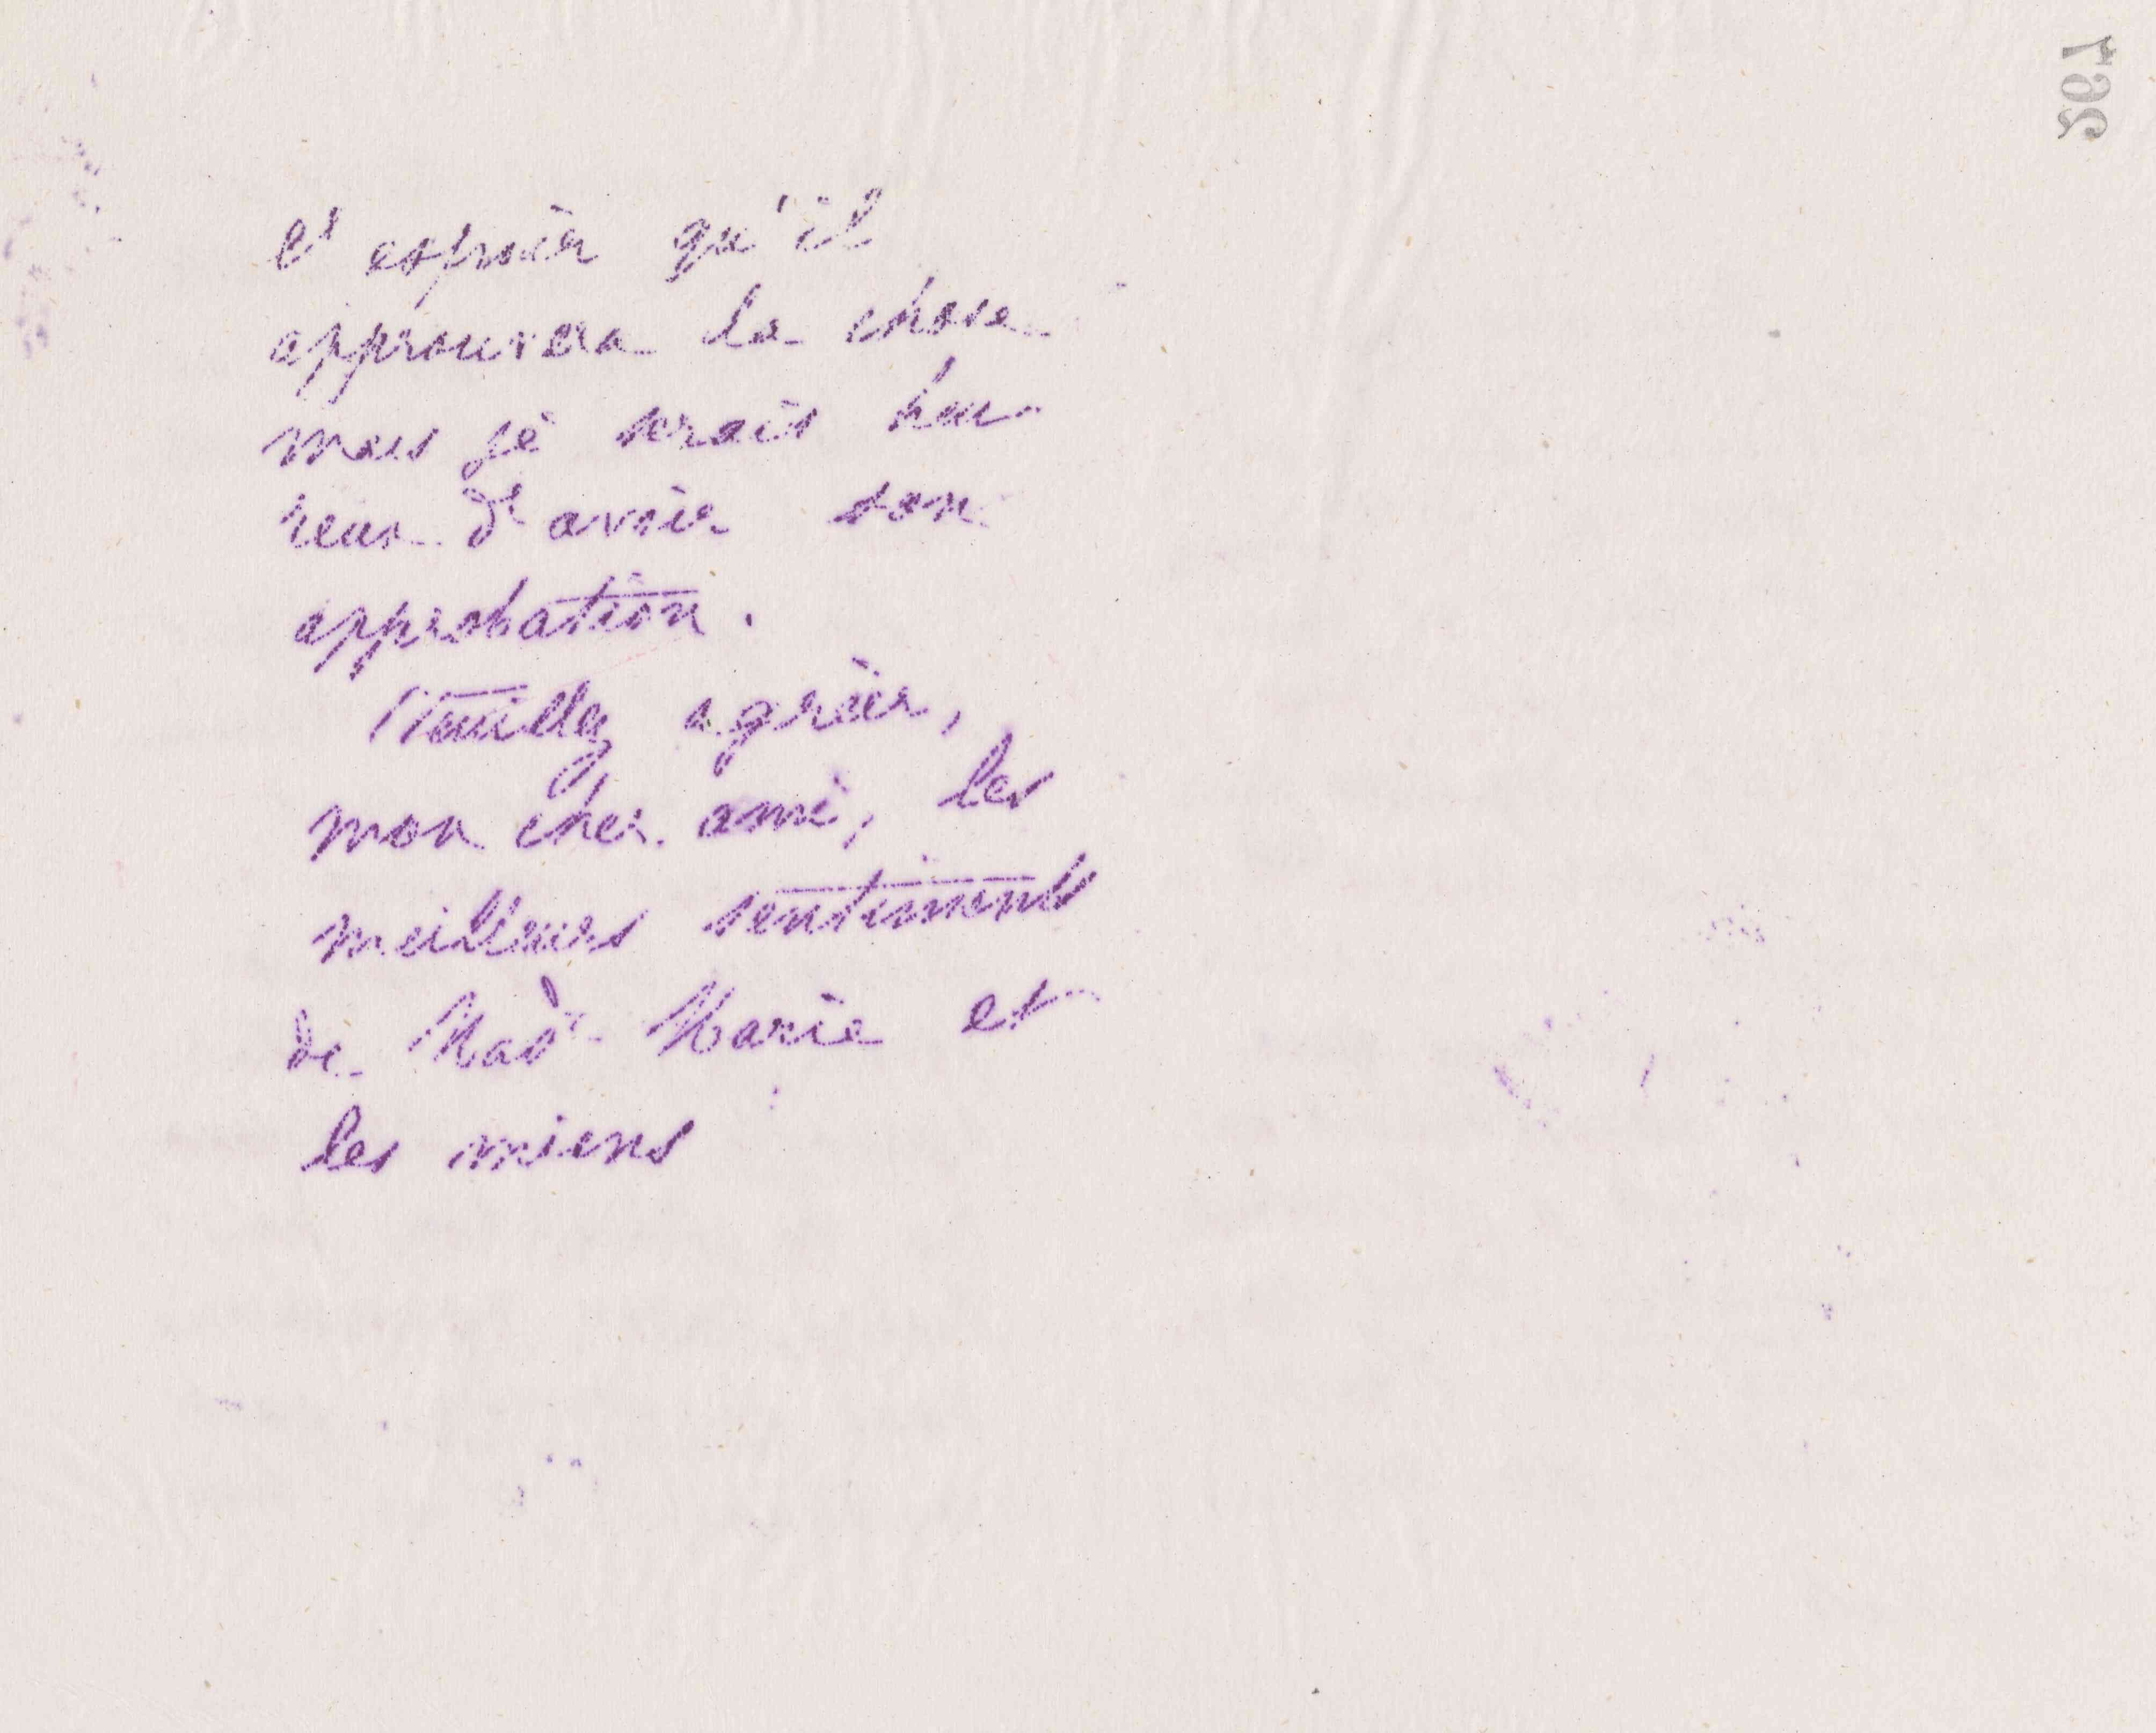 l'espoir qu'il
approuvera la chose
mais je serais heu-
reux d'avoir son
approbation.
Veuillez agréer,
mon cher ami, les
meilleurs sentiments
de Made Marie et
les miens
267